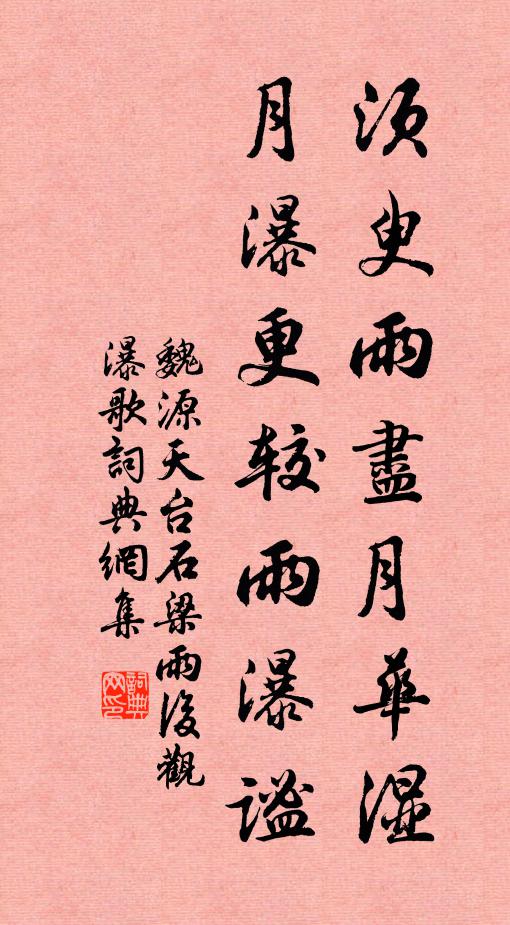 須臾雨盡月華濕
月瀑更較雨瀑謐
魏源天台石梁雨後觀
瀑歌詞典網集
詞典
网印